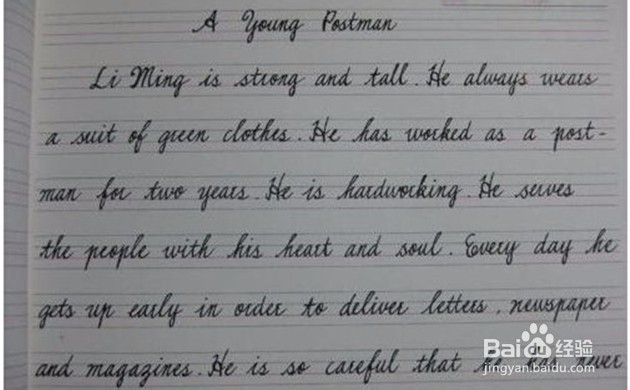 A Young Postman
Li Ming is strong and tall. He always wears
a suit of green clothes. He has worked as a post-
man for two years. He is hardworking. He serves
the people with his heart and soul. Every day he
gets up early in order to deliver letters, newspaper
and magazines. He is so careful that he has never
Baidu经验
jingyan.baidu.com